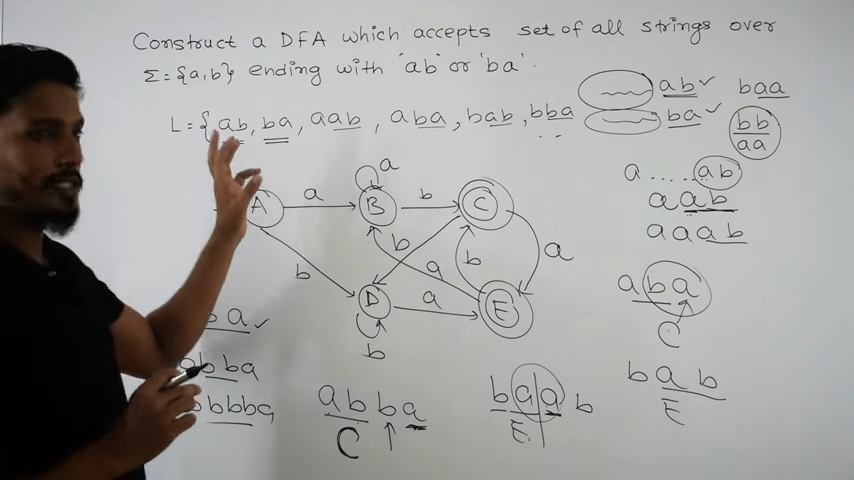 Construct a DFA which accepts set of all strings over
Σ = {a, b} ending with 'ab' or 'ba'.
ab ✓ baa
L = {ab, ba, aab, aba, bab, bba ba ✓ bb
.. aa
a.....ab
a aab
a b aab
A B C
b b a
a aba
b C
D a E
b
ba ✓
bba bab
E
bbba abba baab
C E